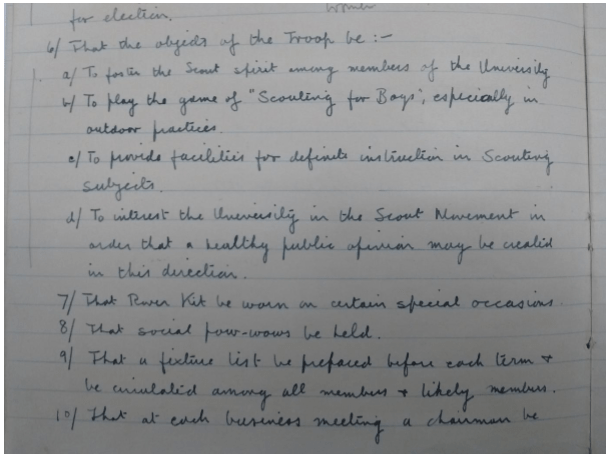 women
for election.
6/ That the objects of the Troop be :-
1. a/ To foster the Scout spirit among members of the University
b/ To play the game of "Scouting for Boys", especially in
outdoor practices.
c/ To provide facilities for definite instruction in Scouting
subjects.
d/ To interest the University in the Scout Movement in
order that a healthy public opinion may be created
in this direction.
7/ That Rover Kit be worn on certain special occasions.
8/ That social pow-wows be held.
9/ That a fixture list be prepared before each term +
be circulated among all members + likely members.
10/ That at each business meeting a chairman be